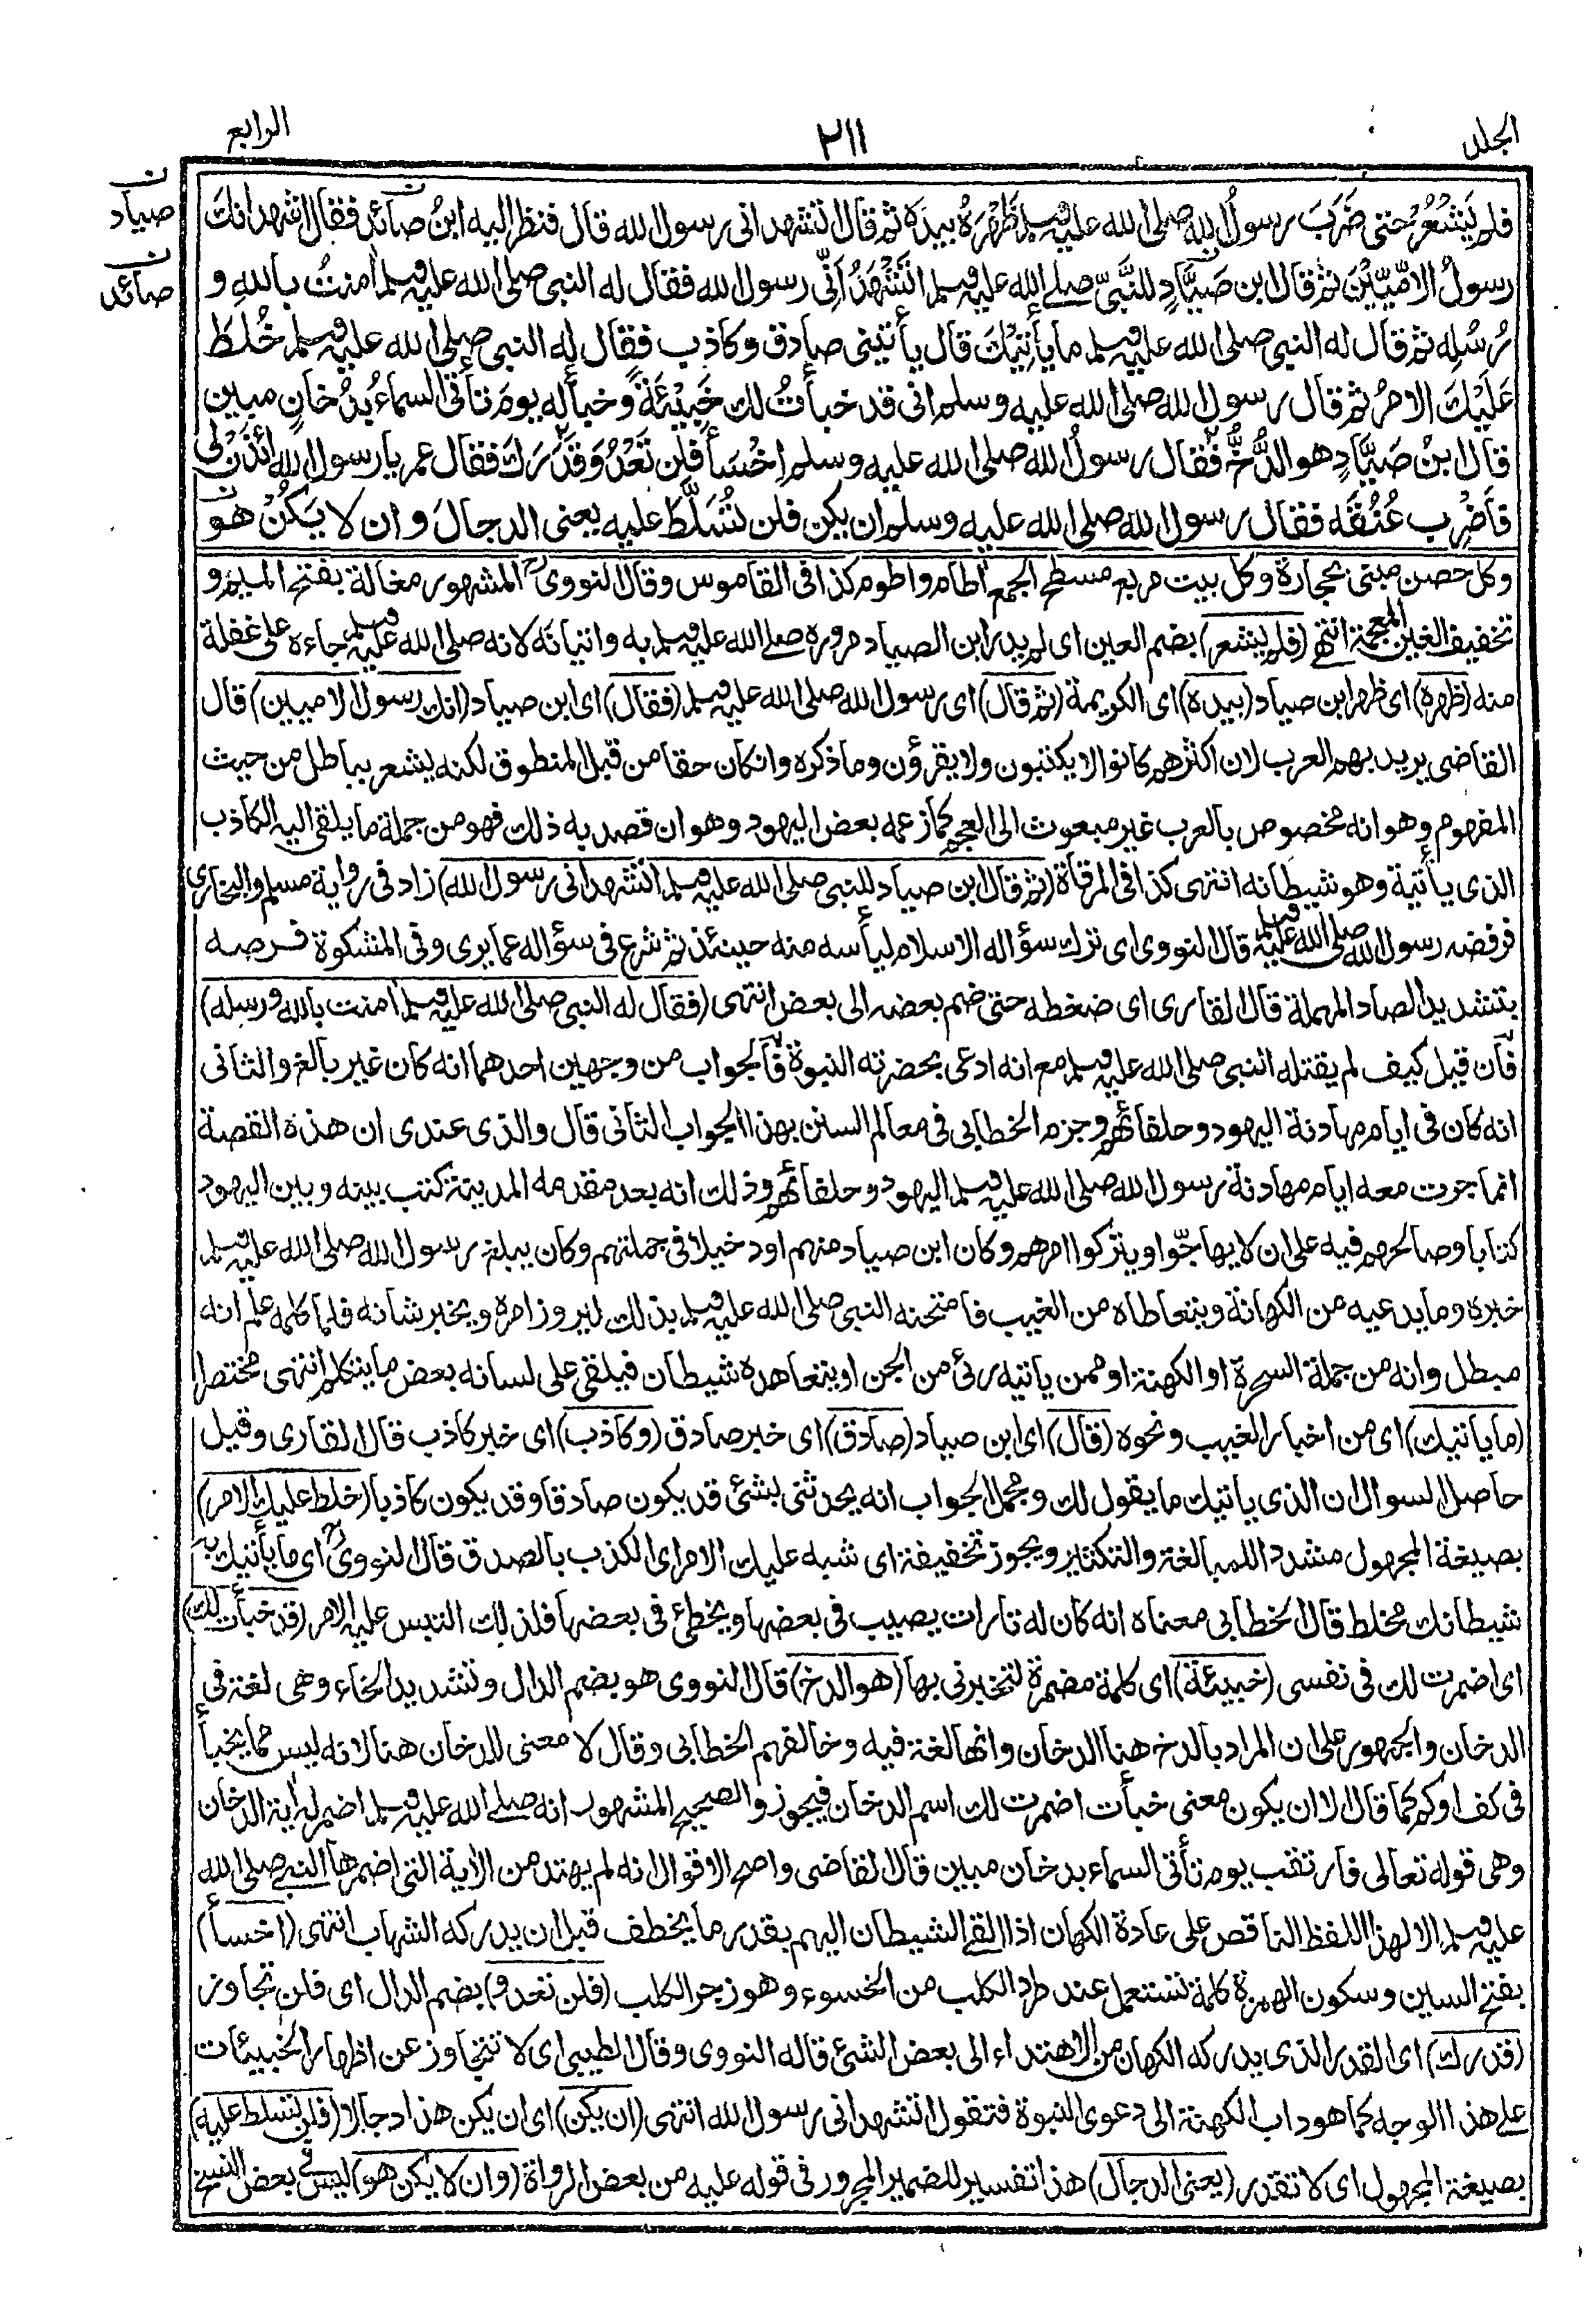 الجلد
٢١١
الرابع
ن
صياد
ن
صائد
فلم يَشْعُرْ حتى ضَرَبَ رسولُ الله صلى الله عليه وسلم ظَهْرَهُ بيده ثم قال اتشهد انى رسول الله قال فنظر اليه ابنُ صائد فقال اشهد انك
رسولُ الامّيّيْنَ ثم قال ابن صَيَّادٍ للنَّبيّ صلے الله عليه وسلم اَتَشْهَدُ اَنِّى رسول الله فقال له النبى صلى الله عليه وسلم اٰمنتُ باللهِ و
رُسُلِه ثم قال له النبى صلى الله عليه وسلم ما يأتِيْكَ قال يأتينى صادق وكاذب فقال له النبى صلى الله عليه وسلم خُلِطَ
عَلَيْكَ الامرُ ثم قال رسول الله صلى الله عليه وسلم انى قد خبأتُ لك خَبِيْئَةً وخبأ له يومَ تأتى السماءُ بدُخانٍ مبين
قال ابنُ صَيَّادٍ هو الدُّخُّ فقال رسولُ الله صلى الله عليه وسلم اِخْسَأْ فلن تَعْدُوَ قَدْرَكَ فقال عمر يا رسول الله ائذن لى
فاَضْرِب عُنُقَه فقال رسول الله صلى الله عليه وسلم ان يكن فلن تُسَلَّطَ عليه يعنى الدجالَ وان لا يَكُنْ هو
وكل حصن مبنى بحجارة وكل بيت مربع مسطح الجمع اٰطام واطوم كذا فى القاموس وقال النووى المشهور مغالة بفتح الميم و
تخفيف الغين المعجمة انتهى (فلم يشعر) بضم العين اى لم يدر ابن الصياد مروره صلے الله عليه وسلم به واتيانه لانه صلى الله عليه وسلم جاءه على غفلة
منه (ظهره) اى ظهر ابن صياد (بيده) اى الكريمة (ثم قال) اى رسول الله صلى الله عليه وسلم (فقال) اى ابن صياد (انك رسول الاميين) قال
القاضى يريد بهم العرب لان اكثرهم كانوا لا يكتبون ولا يقرؤن وما ذكره وان كان حقا من قبل المنطوق لكنه يشعر بباطل من حيث
المفهوم وهو انه مخصوص بالعرب غير مبعوث الى العجم كما زعمه بعض اليهود وهو ان قصد به ذلك فهو من جملة ما يلقى اليه الكاذب
الذى يأتية وهو شيطانه انتهى كذا فى المرقاة (ثم قال ابن صياد للنبى صلى الله عليه وسلم اتشهد انى رسول الله) زاد فى رواية مسلم والبخارى
فرفضه رسول الله صلى الله عليه وسلم قال النووى اى ترك سؤاله الاسلام ليأسه منه حينئذ ثم شرع فى سؤاله عما يرى وفى المشكوة فرصه
بتشديد الصاد المهملة قال القارى اى ضغطه حتى ضم بعضه الى بعض انتهى (فقال له النبى صلى الله عليه وسلم اٰمنت بالله ورسله)
فان قيل كيف لم يقتله النبى صلى الله عليه وسلم مع انه ادعى بحضرته النبوة فالجواب من وجهين احدهما انه كان غير بالغ والثانى
انه كان فى ايام مهادنة اليهود وحلفائهم وجزم الخطابى فى معالم السنن بهذا الجواب الثانى قال والذى عندى ان هذه القصة
انما جرت معه ايام مهادنة رسول الله صلى الله عليه وسلم اليهود وحلفائهم وذلك انه بعد مقدمه المدينة كتب بينه وبين اليهود
كتابا وصالحهم فيه على ان لا يهاجّوا ويتركوا امرهم وكان ابن صياد منهم او دخيلا فى جملتهم وكان يبلغ رسول الله صلى الله عليه وسلم
خبره وما يدعيه من الكهانة ويتعاطاه من الغيب فامتحنه النبى صلى الله عليه وسلم بذلك ليروز امره ويخبر شانه فلما كلمه علم انه
مبطل وانه من جملة السحرة او الكهنة او ممن ياتيه رئى من الجن او يتعاهده شيطان فيلقى على لسانه بعض ما يتكلم انتهى مختصرا
(ما ياتيك) اى من اخبار الغيب ونحوه (قال) اى ابن صياد (صادق) اى خبر صادق (وكاذب) اى خبر كاذب قال القارى وقيل
حاصل السوال ان الذى ياتيك ما يقول لك ومجمل الجواب انه يحدثنى بشئ قد يكون صادقا وقد يكون كاذبا (خلط عليك الامر)
بصيغة المجهول مشددا للمبالغة والتكثير ويجوز تخفيفة اى شبه عليك الامر اى الكذب بالصدق قال النووى اى ما يأتيك به
شيطانك مخلط قال الخطابى معناه انه كان له تارات يصيب فى بعضها ويخطئ فى بعضها فلذلك التبس عليه الامر (قد خبأت لك)
اى اضمرت لك فى نفسى (خبيئة) اى كلمة مضمرة لتخبرنى بها (هو الدخ) قال النووى هو بضم الدال وتشديد الخاء وهى لغة فى
الدخان والجمهور على ان المراد بالدخ هنا الدخان وانها لغة فيه وخالفهم الخطابى وقال لا معنى للدخان هنا لانه ليس مما يخبأ
فى كف او كم كما قال الا ان يكون معنى خبأت اضمرت لك اسم الدخان فيجوز والصحيح المشهور انه صلے الله عليه وسلم اضمر له اٰية الدخان
وهى قوله تعالى فارتقب يوم تأتى السماء بدخان مبين قال القاضى واصح الاقوال انه لم يهتد من الاٰية التى اضمرها النبى صلى الله
عليه وسلم الا لهذا اللفظ الناقص على عادة الكهان اذا القى الشيطان اليهم بقدر ما يخطف قبل ان يدركه الشهاب انتهى (اخسأ)
بفتح السين وسكون الهمزة كلمة تستعمل عند طرد الكلب من الخسوء وهو زجر الكلب (فلن تعدو) بضم الدال اى فلن تجاوز
(قدرك) اى القدر الذى يدركه الكهان من الاهتداء الى بعض الشئ قاله النووى وقال الطيبى اى لا تتجاوز عن اظهار الخبيئات
على هذا الوجه كما هو داب الكهنة الى دعوى النبوة فتقول اتشهد انى رسول الله انتهى (ان يكن) اى ان يكن هذا دجالا (فلن تسلط عليه)
بصيغة المجهول اى لا تقدر (يعنى الدجال) هذا تفسير للضمير المجرور فى قوله عليه من بعض الرواة (وان لا يكن هو) ليس فى بعض النسخ